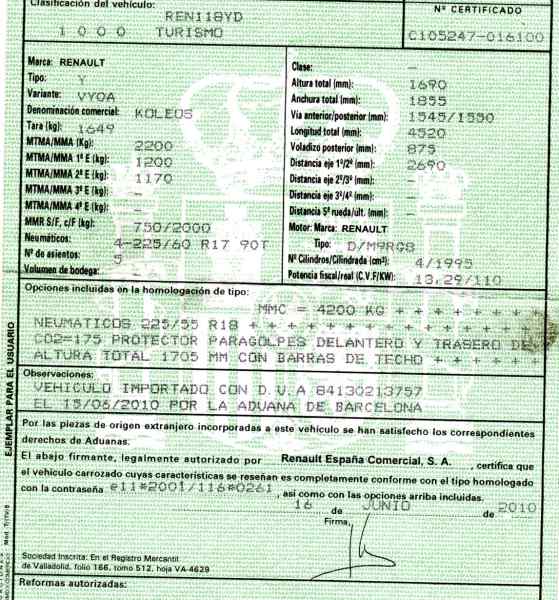 Clasificación del vehículo:
REN118YD
1 0 0 0 TURISMO
Nº CERTIFICADO
C105247-016100
Marca: RENAULT
Tipo: Y
Variante: VYOA
Denominación comercial: KOLEOS
Tara (kg): 1649
MTMA/MMA (Kg): 2200
MTMA/MMA 1º E (kg): 1200
MTMA/MMA 2º E (kg): 1170
MTMA/MMA 3º E (kg): –
MTMA/MMA 4º E (kg): –
MMR S/F, c/F (kg): 750/2000
Neumáticos: 4-225/60 R17 90T
Nº de asientos: 5
Volumen de bodega: –
Clase: –
Altura total (mm): 1690
Anchura total (mm): 1855
Via anterior/posterior (mm): 1545/1550
Longitud total (mm): 4520
Voladizo posterior (mm): 875
Distancia eje 1º/2º (mm): 2690
Distancia eje 2º/3º (mm): –
Distancia eje 3º/4º (mm): –
Distancia 5ª rueda/últ. (mm): –
Motor: Marca: RENAULT
Tipo: D/M9RG8
Nº Cilindros/Cilindrada (cm³): 4/1995
Potencia fiscal/real (C.V.F/KW): 13,29/110
Opciones incluidas en la homologación de tipo:
MMC = 4200 KG + + + + + +
NEUMATICOS 225/55 R18 + + + + + + + + + + + + +
CO2=175 PROTECTOR PARAGOLPES DELANTERO Y TRASERO DE
ALTURA TOTAL 1705 MM CON BARRAS DE TECHO + + + + +
Observaciones:
VEHICULO IMPORTADO CON D.V.A 84130213757
EL 15/06/2010 POR LA ADUANA DE BARCELONA
Por las piezas de origen extranjero incorporadas a este vehículo se han satisfecho los correspondientes
derechos de Aduanas.
El abajo firmante, legalmente autorizado por Renault España Comercial, S. A. , certifica que
el vehículo carrozado cuyas características se reseñan es completamente conforme con el tipo homologado
con la contraseña e11*2001/116*0261 , así como con las opciones arriba incluidas.
16 de JUNIO de 2010
Firma,
Sociedad Inscrita: En el Registro Mercantil
de Valladolid, folio 166, tomo 512, hoja VA-4629
Reformas autorizadas:
EJEMPLAR PARA EL USUARIO